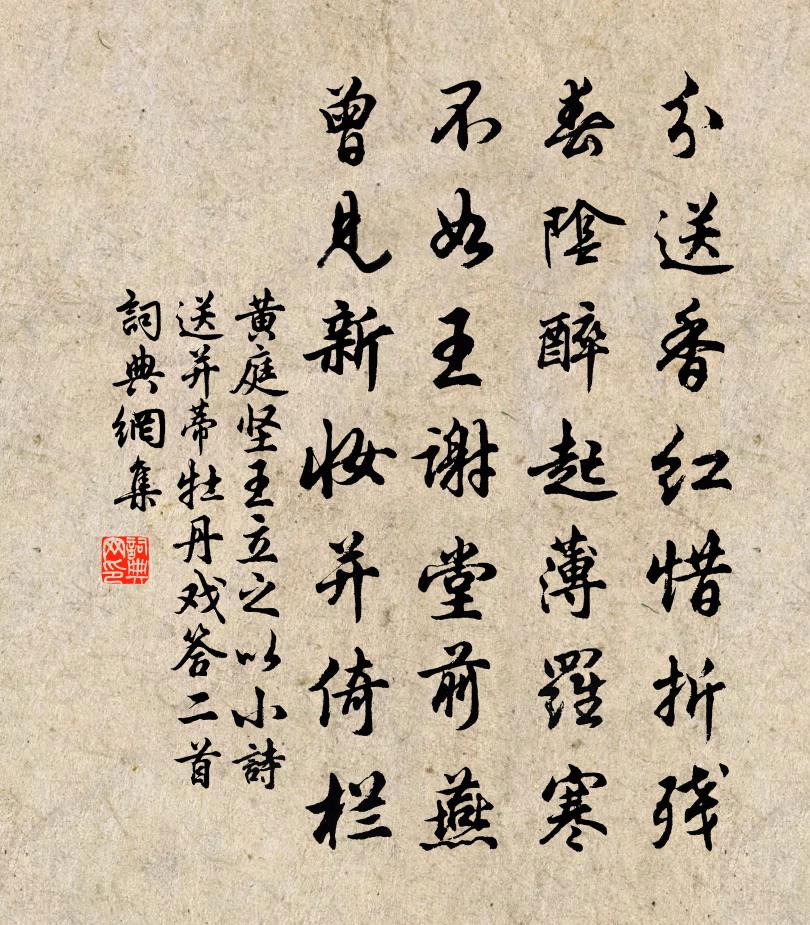 分送香红惜折残
春陰醉起薄羅寒
不如王謝堂前燕
曾見新妝并倚栏
黄庭坚王立之以小詩
送并蒂牡丹戏答二首
詞典網集
詞典
网印